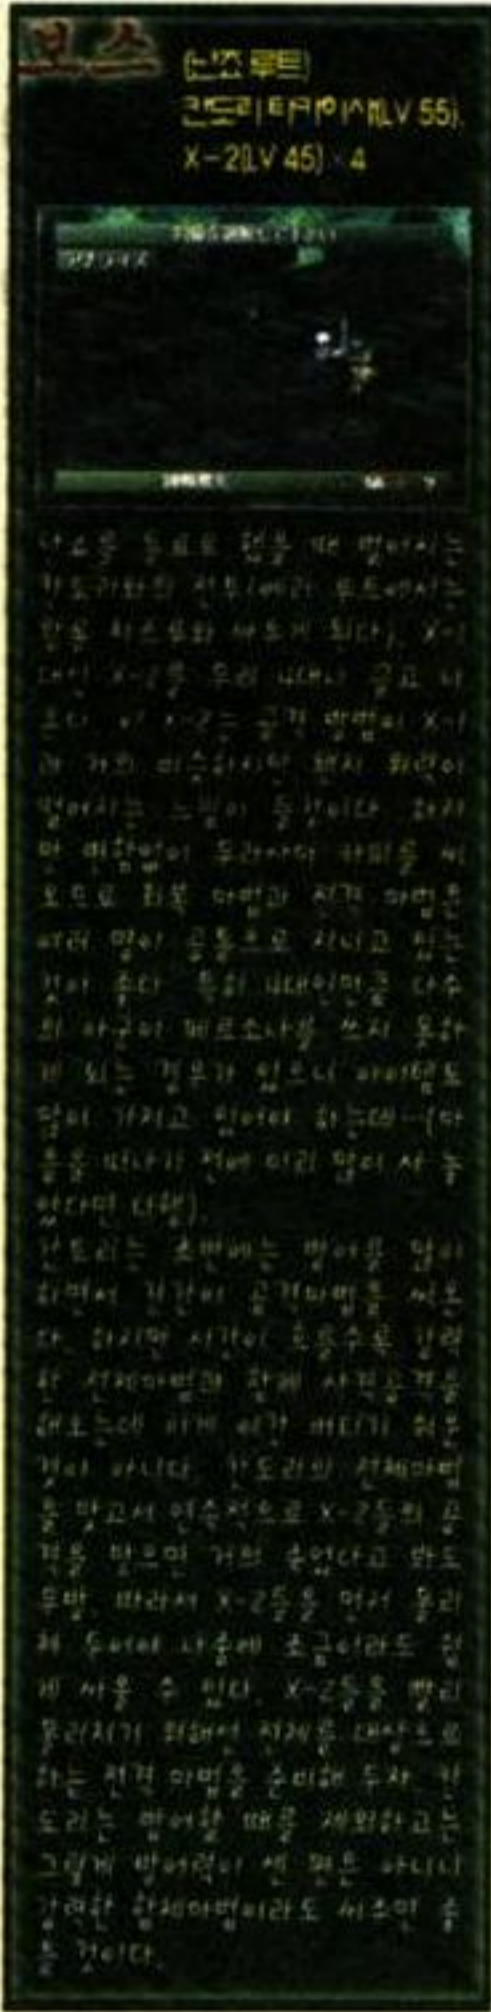 보스
(난죠 루트)
칸도리 타카이사(LV 55),
X-2(LV 45) × 4
난죠를 동료로 했을 때 벌어지는
칸도리와의 전투(에리 루트에서는
X-1
대신 X-2를 무려 4대나 끌고 나
온다. 이 X-2는 공격 방법이 X-1
과 거의 비슷하지만 왠지 위력이
떨어지는 느낌이 들 것이다. 하지
만
오므로 회복 마법과 전격 마법은
여러 명이 공통으로 지니고 있는
것이 좋다. 특히 4대인만큼 다수
의 아군이 페르소나를 쓰지 못하
게 되는 경우가 있으니 아이템도
많이 가지고 있어야 하는데…(마
을을 떠나기 전에 미리 많이 사 놓
았다면 다행).
칸도리는 초반에는 방어를 많이
하면서 간간이 공격마법을 써온
다. 하지만 시간이 흐를수록 강력
한 전체마법과 함께 사격공격을
해오는데 이게 여간 버티기 쉬운
것이 아니다. 칸도리의 전체마법
을 맞고서 연속적으로 X-2들의 공
격을 받으면 거의 죽었다고 봐도
무방. 따라서 X-2들을 먼저 물리
쳐 두어야 나중에 조금이라도 쉽
게 싸울 수 있다. X-2들을 빨리
물리치기 위해선 전체를 대상으로
하는 전격 마법을 준비해 두자. 칸
도리는 방어할 때를 제외하고는
그렇게 방어력이 센 편은 아니니
강력한 합체마법이라도 써주면 좋
을 것이다.